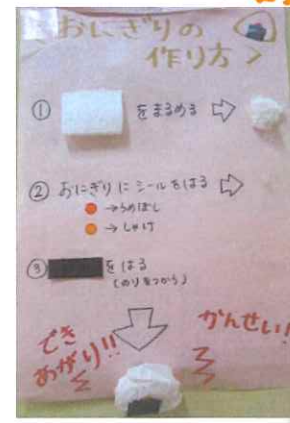 おにぎりの
作り方>
① をまるめる
② おにぎりにシールをはる
→うめぼし
→しゃけ
③ をはる
(のりをつかう)
でき
あがり!!
かんせい!